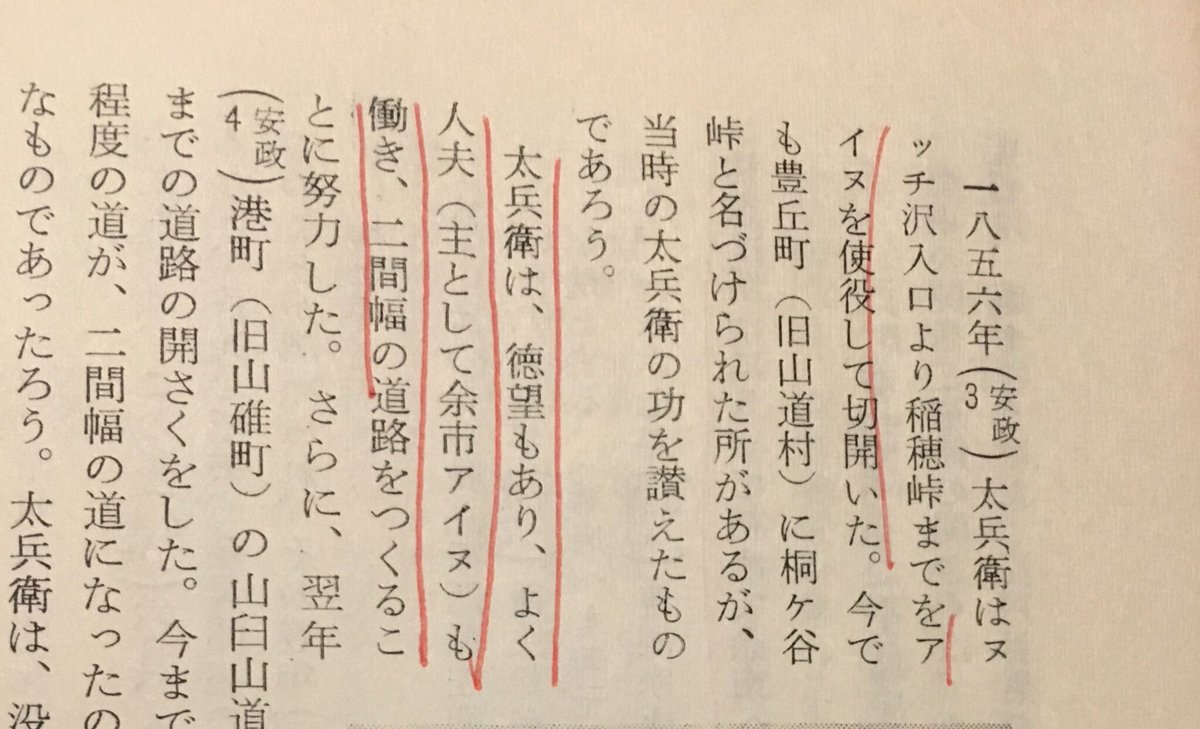 一八五六年(安政3)太兵衛はヌ
ッチ沢入口より稲穂峠までをア
イヌを使役して切開いた。今で
も豊丘町(旧山道村)に桐ケ谷
峠と名づけられた所があるが、
当時の太兵衛の功を讃えたもの
であろう。
太兵衛は、徳望もあり、よく
人夫(主として余市アイヌ)も
働き、二間幅の道路をつくるこ
とに努力した。さらに、翌年
(安政4)港町(旧山碓町)の山臼山道
までの道路の開さくをした。今まで
程度の道が、二間幅の道になったの
なものであったろう。太兵衛は、没